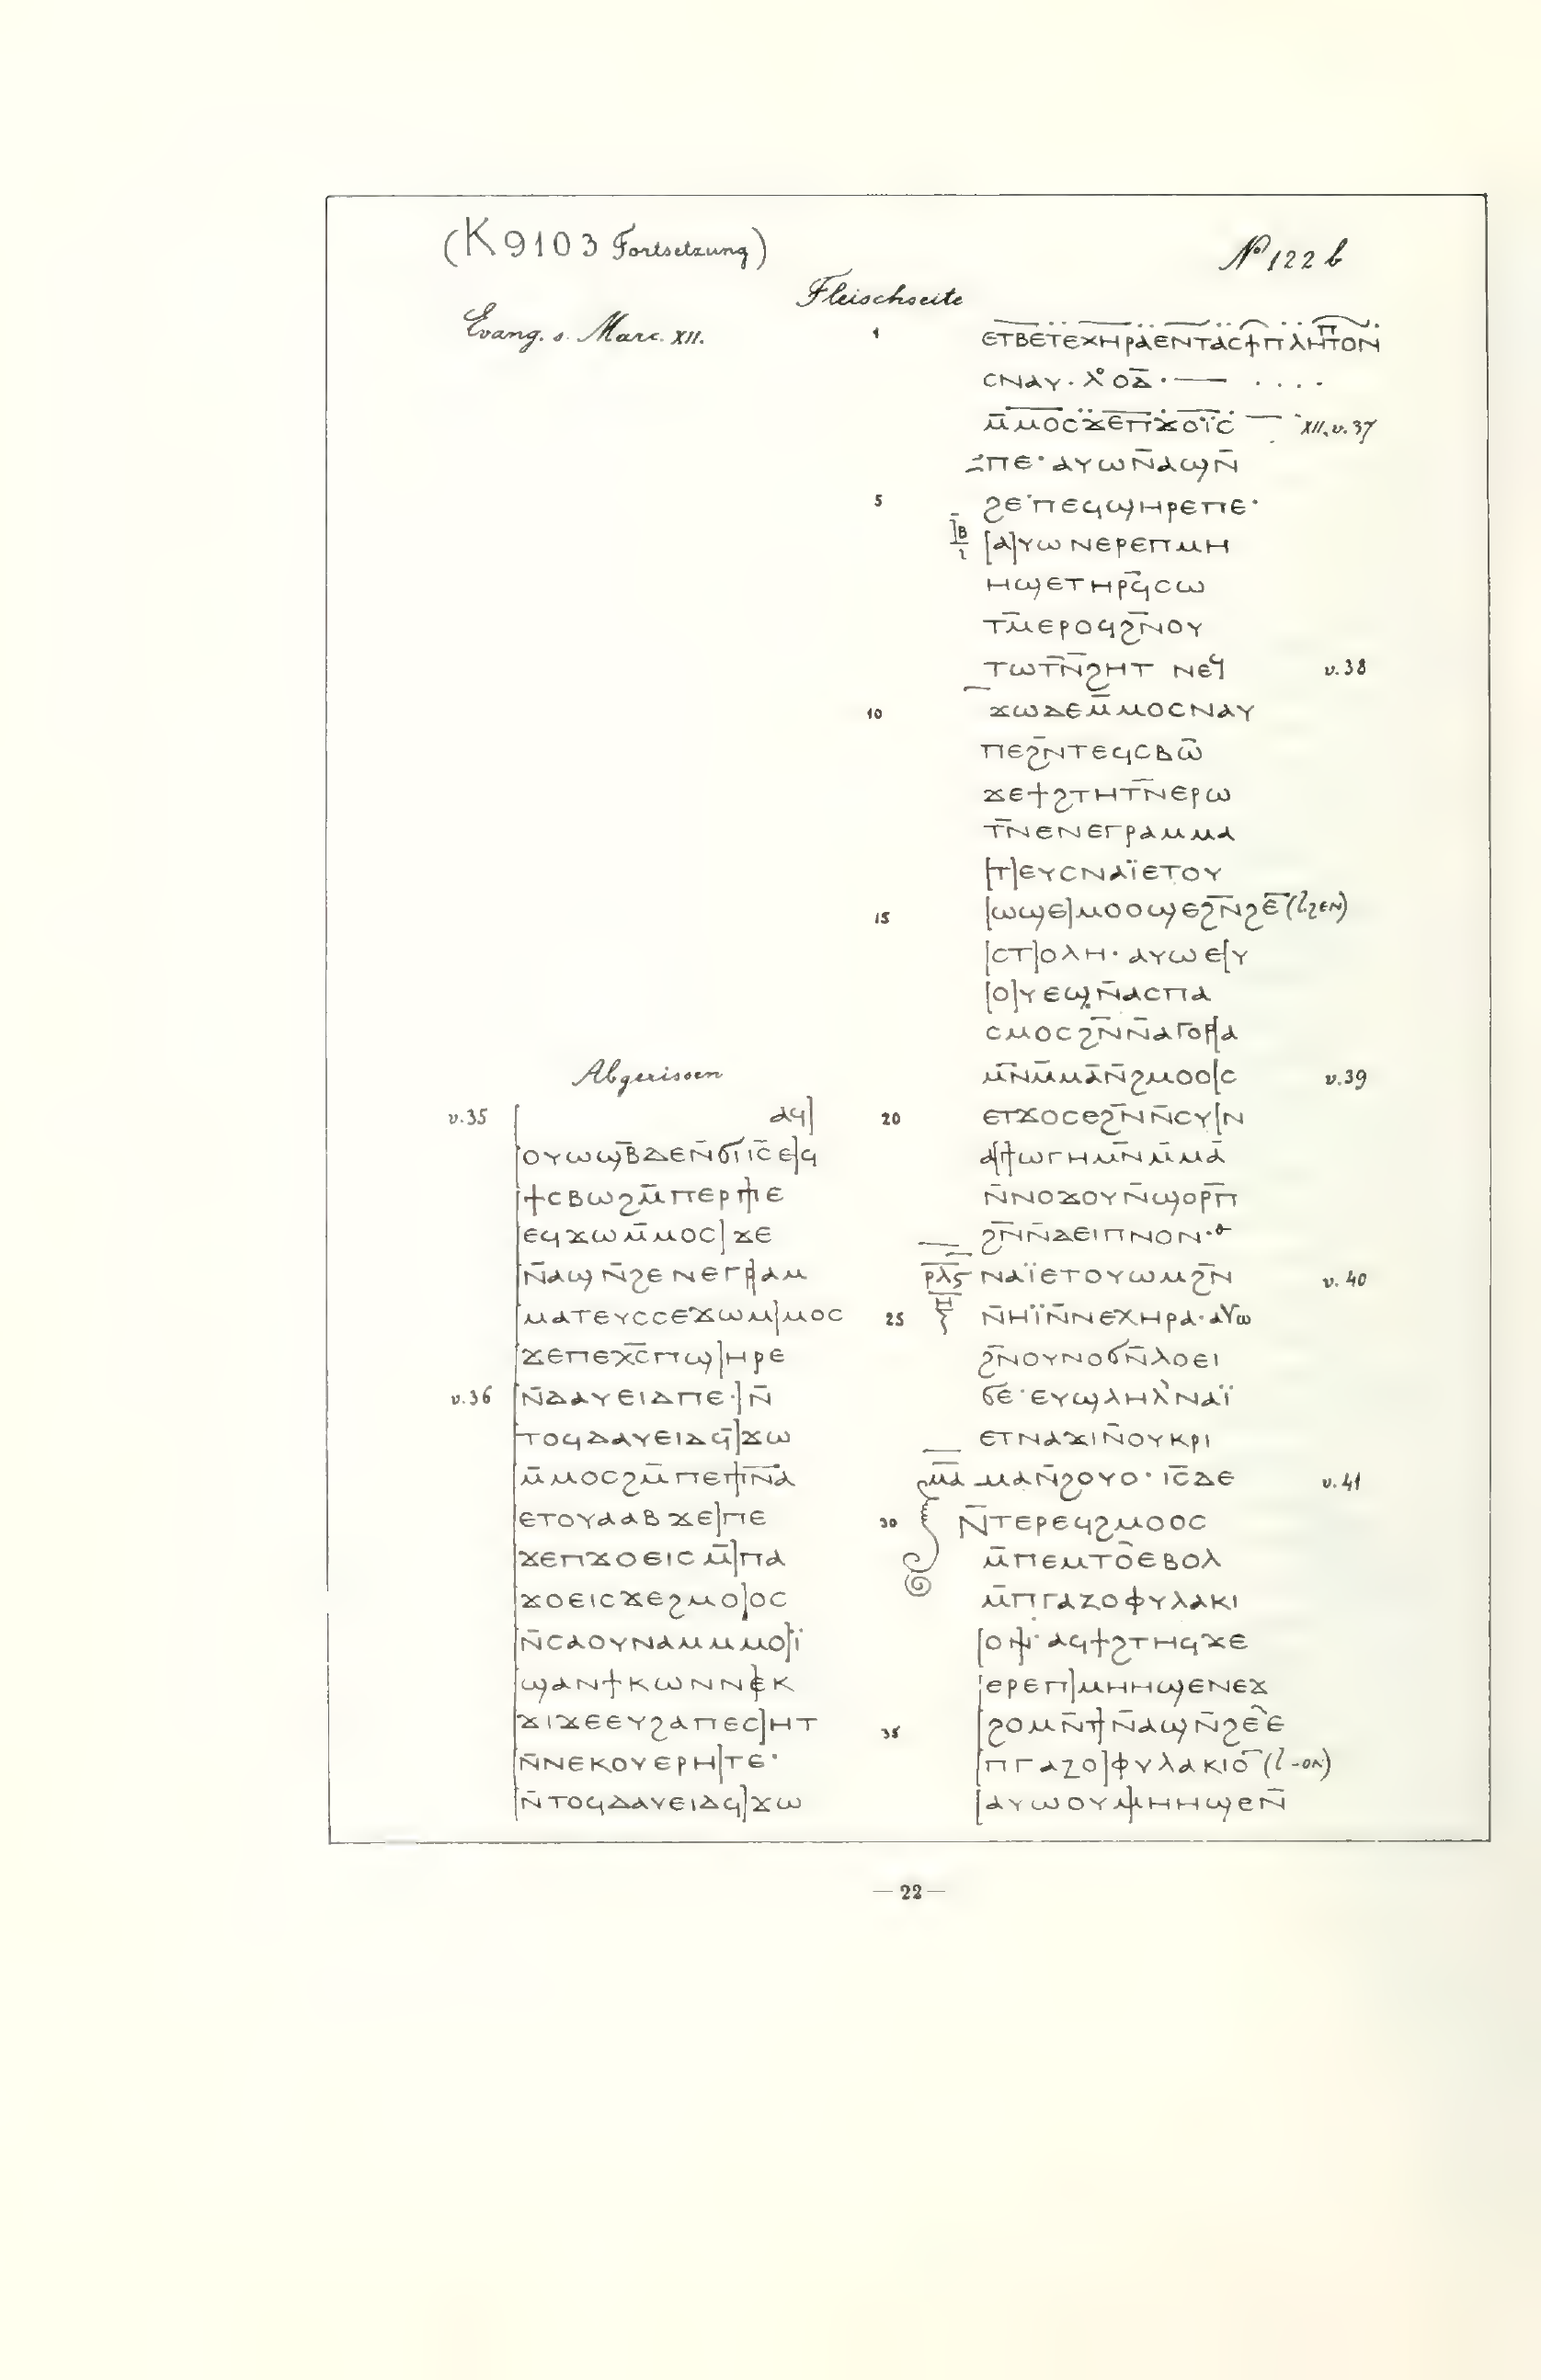 (K 9103 Fortsetzung)
Nº 122 b
Fleischseite
Evang. s. Marc. XII.
Abgerissen
v.35 [ ⲁϥ]
[ⲟⲩⲱϣⲃ̄ⲇⲉⲛ̄ϭⲓⲓ̄ⲥ̄ ⲉ]ϥ
[ϯⲥⲃⲱϩⲙ̄ⲡⲉⲣⲡⲉ
[ⲉϥϫⲱⲙ̄ⲙⲟⲥ]ϫⲉ
[ⲛ̄ⲁϣⲛ̄ϩⲉ ⲛⲉⲅⲣ]ⲁⲙ
[ⲙⲁⲧⲉⲩⲥⲥⲉϫⲱⲙ]ⲙⲟⲥ
[ϫⲉⲡⲉⲭ̄ⲥ̄ⲡϣ]ⲏⲣⲉ
v.36 [ⲛ̄ⲇⲁⲩⲉⲓⲇⲡⲉ·]ⲛ̄
[ⲧⲟϥⲇⲁⲩⲉⲓⲇϥ̄]ϫⲱ
[ⲙ̄ⲙⲟⲥϩⲙ̄ⲡⲉⲡ̄ⲛ̄ⲁ̄
[ⲉⲧⲟⲩⲁⲁⲃ ϫⲉ]ⲡⲉ
[ϫⲉⲡϫⲟⲉⲓⲥ ⲙ̄]ⲡⲁ
[ϫⲟⲉⲓⲥϫⲉϩⲙⲟ]ⲟⲥ
[ⲛ̄ⲥⲁⲟⲩⲛⲁⲙⲙⲙⲟ]ⲓ̈
[ϣⲁⲛϯⲕⲱⲛⲛ]ⲉⲕ
[ϫⲓϫⲉⲉⲩϩⲁⲡⲉⲥ]ⲏⲧ
[ⲛ̄ⲛⲉⲕⲟⲩⲉⲣⲏ]ⲧⲉ·
[ⲛ̄ⲧⲟϥⲇⲁⲩⲉⲓⲇϥ]ϫⲱ
1 ⲉⲧⲃⲉⲧⲉⲭⲏⲣⲁⲉⲛⲧⲁⲥϯⲡⲗⲏⲡⲧⲟⲛ
ⲥⲛⲁⲩ· ⲗ° ⲟⲇ̄·— ····
ⲙ̄ⲙⲟⲥϫⲉⲡϫⲟⲓ̈ⲥ XII, v.37
ⲡⲉ· ⲁⲩⲱⲛ̄ⲁϣⲛ̄
5 ϩⲉ·ⲡⲉϥϣⲏⲣⲉⲡⲉ·
[ⲁ]ⲩⲱ ⲛⲉⲣⲉⲡⲙⲏ
ⲏϣⲉⲧⲏⲣϥ̄ⲥⲱ
ⲧⲙ̄ⲉⲣⲟϥϩⲛ̄ⲟⲩ
ⲧⲱⲧⲛ̄ϩⲏⲧ ⲛⲉϥ v.38
10 ϫⲱⲇⲉⲙ̄ⲙⲟⲥⲛⲁⲩ
ⲡⲉϩⲛ̄ⲧⲉϥⲥⲃⲱ̂
ϫⲉϯϩⲧⲏⲧⲛ̄ⲉⲣⲱ
ⲧⲛ̄ⲉⲛⲉⲅⲣⲁⲙⲙⲁ
[ⲧ]ⲉⲩⲥⲛⲁⲓ̈ⲉⲧⲟⲩ
15 [ⲱϣⲉ]ⲙⲟⲟϣⲉϩⲛ̄ϩⲉ̄ (l. ϩⲉⲛ)
[ⲥⲧ]ⲟⲗⲏ· ⲁⲩⲱ ⲉ[ⲩ
[ⲟ]ⲩⲉϣⲛ̄ⲁⲥⲡⲁ
ⲥⲙⲟⲥϩⲛ̄ⲛ̄ⲁⲅⲟⲣ[ⲁ
ⲙⲛ̄ⲙ̄ⲙⲁⲛ̄ϩⲙⲟⲟ[ⲥ v.39
20 ⲉⲧϫⲟⲥⲉϩⲛ̄ⲛ̄ⲥⲩ[ⲛ
ⲁⲅⲱⲅⲏⲙⲛ̄ⲙ̄ⲙⲁ̄
ⲛ̄ⲛⲟϫⲟⲩⲛ̄ϣⲟⲣⲡ̄
ϩⲛ̄ⲛ̄ⲇⲉⲓⲡⲛⲟⲛ·
ⲣⲗⲋ ⲏ ⲛⲁⲓ̈ⲉⲧⲟⲩⲱⲙϩⲛ̄ v.40
25 ⲛ̄ⲏⲓ̈ⲛ̄ⲛⲉⲭⲏⲣⲁ·ⲁⲩⲱ
ϩⲛ̄ⲟⲩⲛⲟϭⲛ̄ⲗⲟⲉⲓ
ϭⲉ·ⲉⲩϣⲗⲏⲗ̀ⲛⲁⲓ̈
ⲉⲧⲛⲁϫⲓⲛ̄ⲟⲩⲕⲣⲓ
ⲙⲁ ⲙⲁⲛ̄ϩⲟⲩⲟ· ⲓ̄ⲥ̄ⲇⲉ v.41
30 ⲛ̄ⲧⲉⲣⲉϥϩⲙⲟⲟⲥ
ⲙ̄ⲡⲉⲙⲧⲟ̂ⲉⲃⲟⲗ
ⲙ̄ⲡⲅⲁⲍⲟⲫⲩⲗⲁⲕⲓ
[ⲟⲛ]· ⲁϥϯϩⲧⲏϥϫⲉ
[ⲉⲣⲉⲡ]ⲙⲏⲏϣⲉⲛⲉϫ
35 [ϩⲟⲙⲛ̄ⲧ]ⲛ̄ⲁϣⲛ̄ϩⲉ̂ⲉ
[ⲡⲅⲁⲍⲟ]ⲫⲩⲗⲁⲕⲓⲟ̄ (l -ⲟⲛ)
[ⲁⲩⲱⲟⲩⲙ]ⲏⲏϣⲉⲛ̄
— 22 —